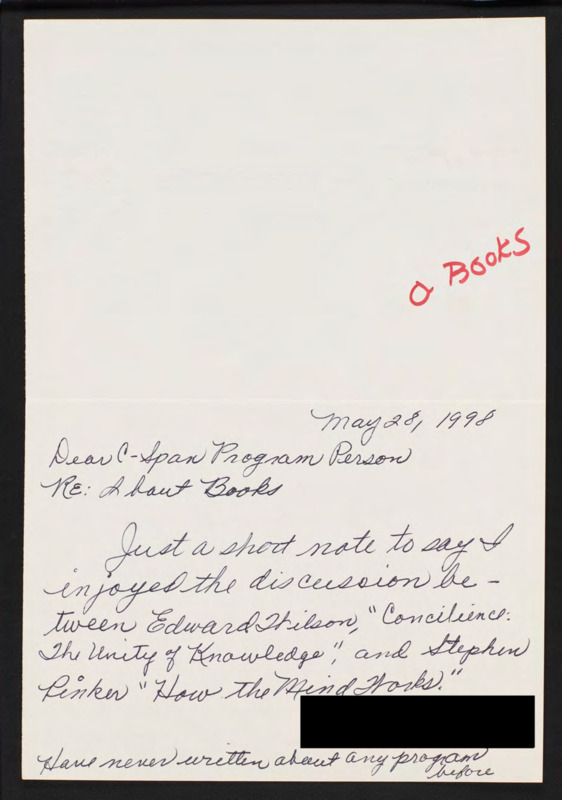 a Books
May 28, 1998
Dear C-Span Program Person
RE: About Books
Just a short note to say I
enjoyed the discussion be-
tween Edward Wilson, "Concilience:
The Unity of Knowledge", and Stephen
Pinker "How the Mind Works."
Have never written about any program
before